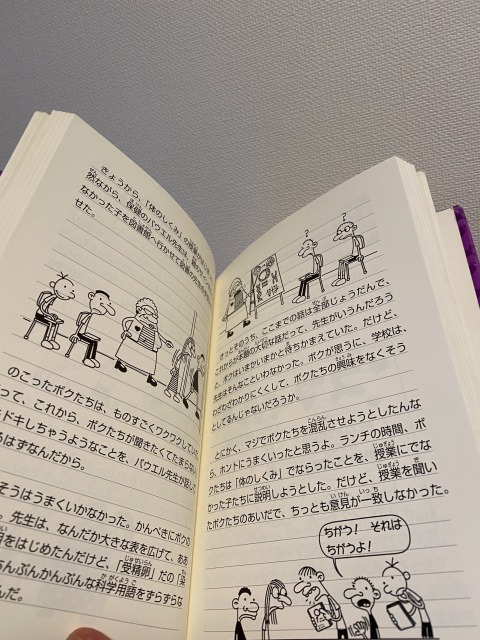 きょうから、「体のしくみ」の授業が
然ながら、保健のパウエル先生は、親の
なかった子を図書館へ行かせて
せた。
のこったボクたちは、ものすごくワクワクしていた
って、これから、ボクたちが聞きたくてたまらない
ドキしちゃうようなことを、パウエル先生が話して
るはずなんだから。
そうはうまくいかなかった。かんぺきにボクの
。先生は、なんだか大きな表を広げて、ああ
明をはじめたんだけど、「受精卵」だの「染
ちんぷんかんぷんな科学用語をずらずらな
んだ。
?
?
きっとそのうち、ここまでの話は全部じょうだんで、
これからが本題の大切な話だって、先生がいうんだろう
と、ボクはいまかいまかと待ちかまえていた。だけど、
先生はそんなこといわなかった。ボクが思うに、学校は、
わざわざわかりにくくして、ボクたちの興味をなくそう
としてるんじゃないだろうか。
とにかく、マジでボクたちを混乱させようとしたんな
ら、ホントにうまくいったと思うよ。ランチの時間、ボ
クたちは「体のしくみ」でならったことを、授業にでな
かった子たちに説明しようとした。だけど、授業を聞い
たボクたちのあいだで、ちっとも意見が一致しなかった。
ちがう！ それは
ちがうよ！